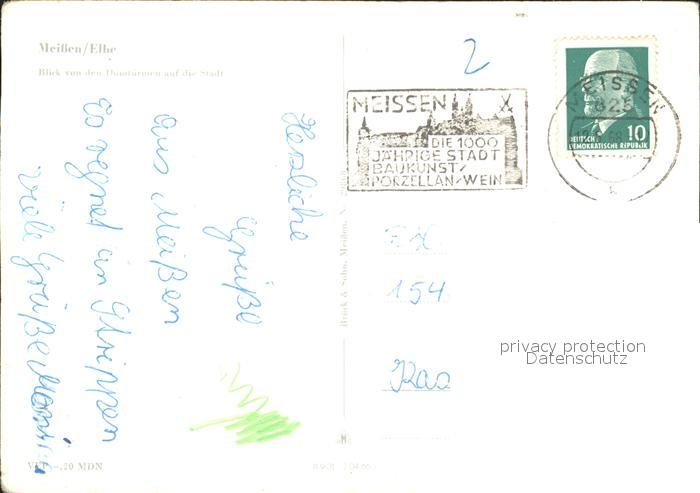 Meißen/Elbe
Blick von den Domtürmen auf die Stadt
Herzliche
Grüße
aus Meißen
Es regnet in Strippen
Viele Grüße
Brück & Sohn, Meißen,
VEP -,20 MDN
2
MEISSEN
DIE 1000
JÄHRIGE STADT
BAUKUNST/
PORZELLAN/WEIN
MEISSEN
10
DEUTSCHE
DEMOKRATISCHE REPUBLIK
154
privacy protection
Datenschutz